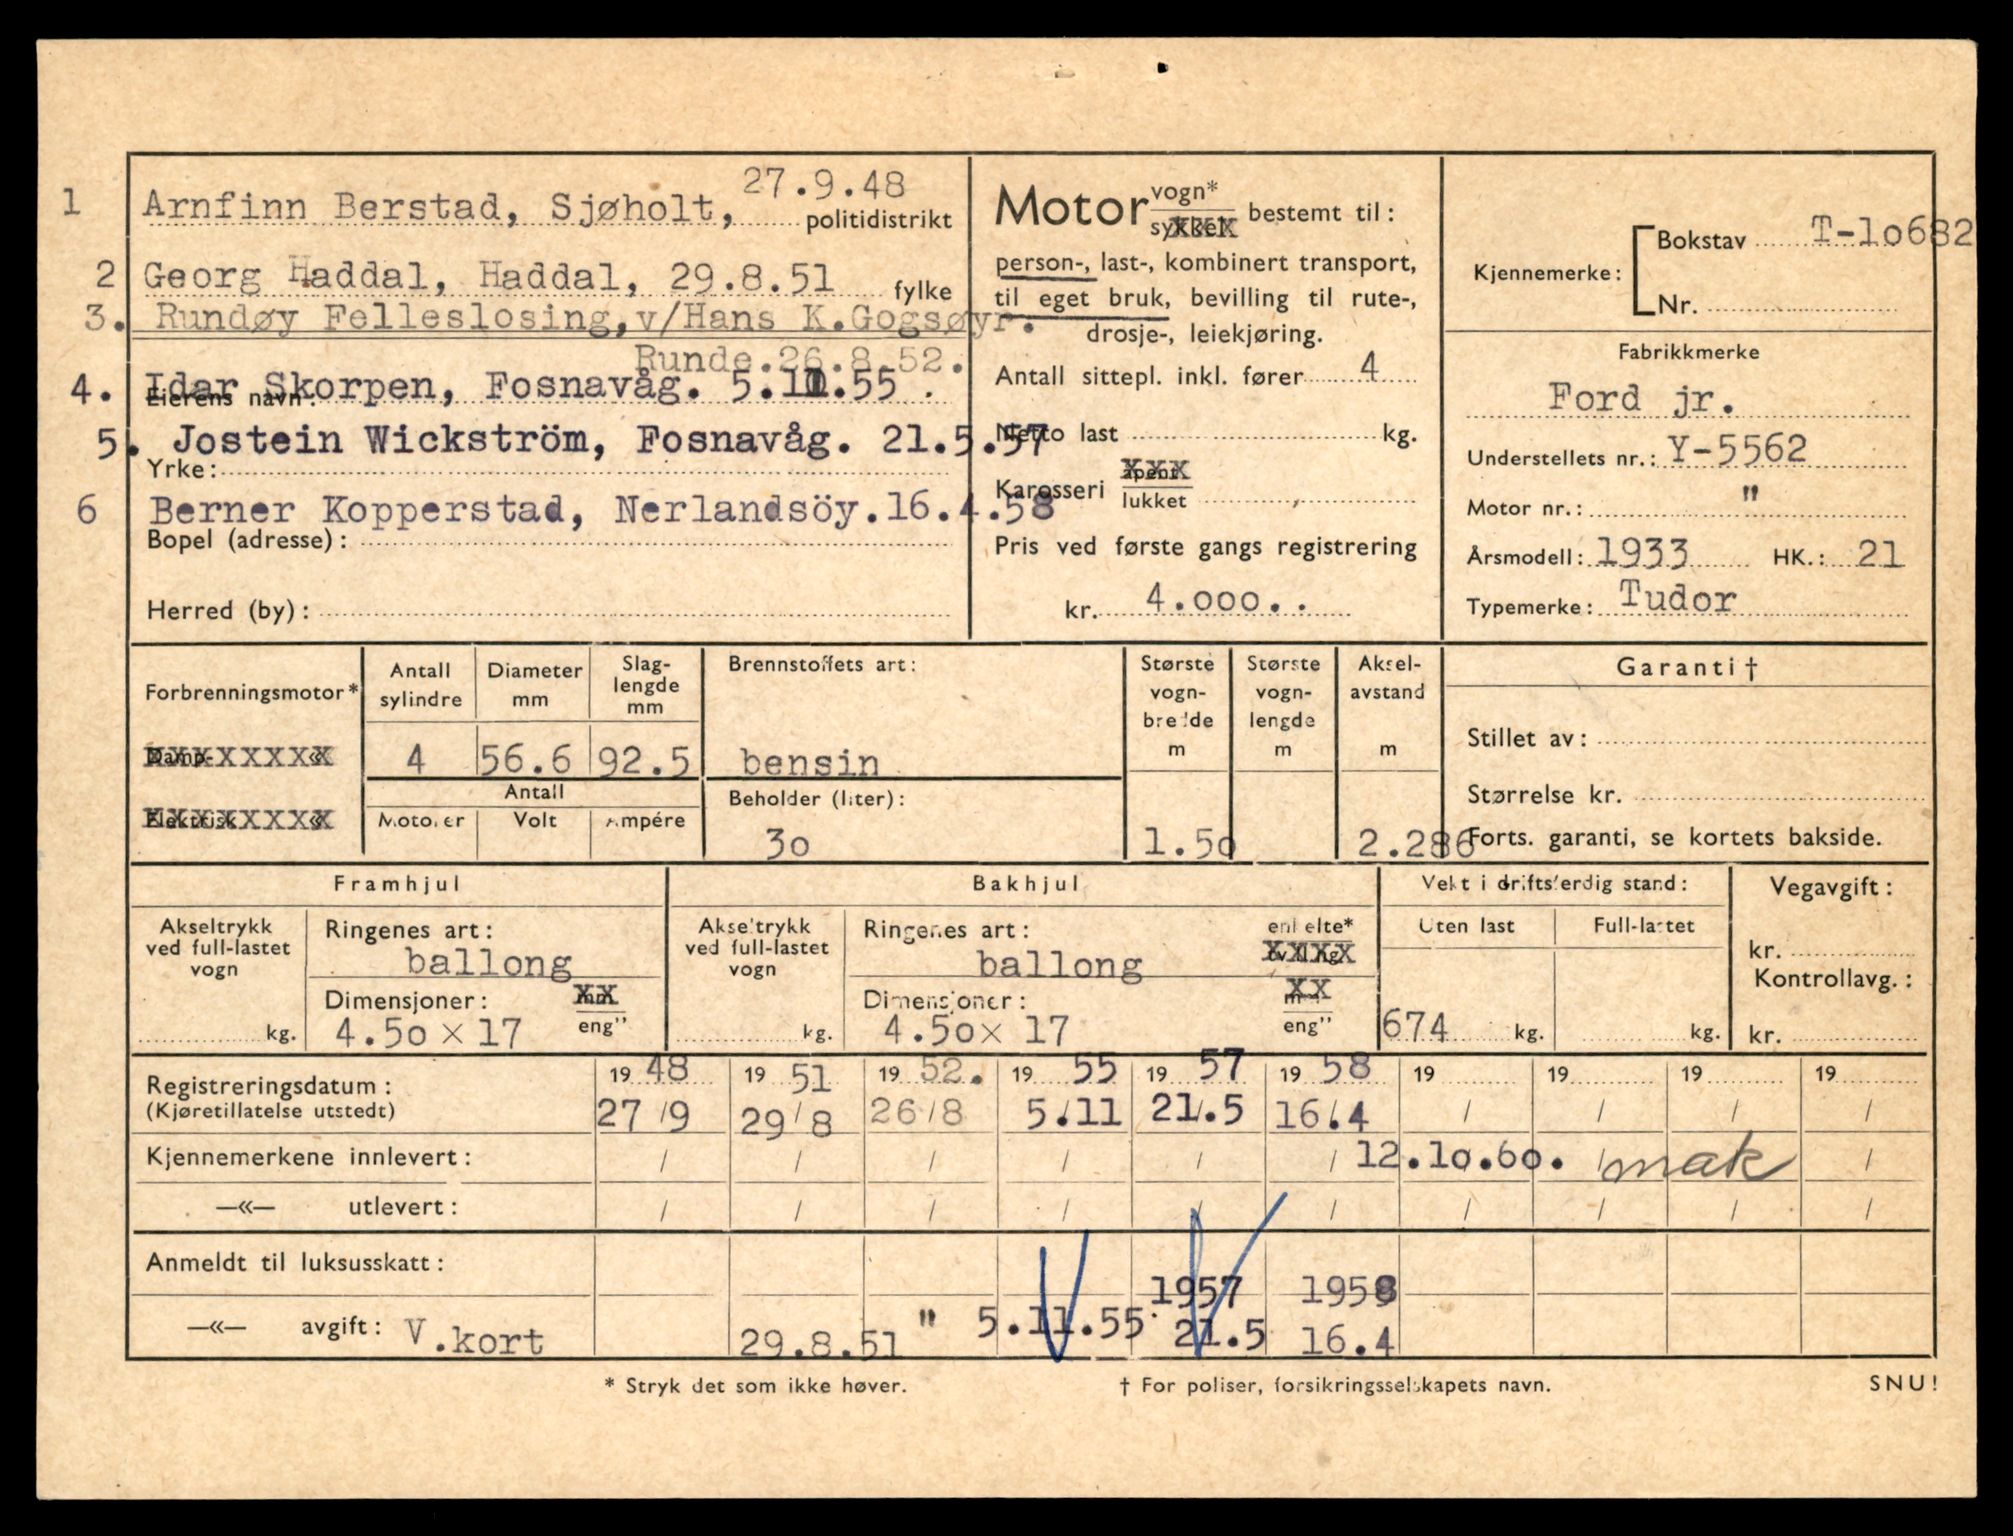 27.9.48
1 Arnfinn Berstad, Sjøholt, politidistrikt
2 Georg Haddal, Haddal, 29.8.51 fylke
3. Rundøy Felleslosing, v/Hans K.Gogsøyr.
Runde.26.8.52.
4. Idar Skorpen, Fosnavåg. 5.11.55 .
Eierens navn:
5. Jostein Wickström, Fosnavåg. 21.5.57
Yrke:
6 Berner Kopperstad, Nerlandsöy.16.4.58
Bopel (adresse):
Herred (by):
Motor vogn*
sykkel bestemt til:
person-, last-, kombinert transport,
til eget bruk, bevilling til rute-,
drosje-, leiekjøring.
Antall sittepl. inkl. fører 4
Netto last kg.
Karosseri åpent
lukket
Pris ved første gangs registrering
kr. 4.000..
Kjennemerke: Bokstav T-10682
Nr.
Fabrikkmerke
Ford jr.
Understellets nr.: Y-5562
Motor nr.: "
Årsmodell: 1933 HK.: 21
Typemerke: Tudor
Forbrenningsmotor*
Damp- «
Elektrisk «
Antall sylindre
4
Diameter mm
56.6
Slag-
lengde
mm
92.5
Antall
Motorer Volt Ampére
Brennstoffets art:
bensin
Beholder (liter):
30
Største
vogn-
bredde
m
1.50
Største
vogn-
lengde
m
Aksel-
avstand
m
2.286
Garanti †
Stillet av:
Størrelse kr.
Forts. garanti, se kortets bakside.
Framhjul
Akseltrykk
ved full-lastet
vogn
kg.
Ringenes art:
ballong
Dimensjoner: mm
4.50 × 17 eng"
Bakhjul
Akseltrykk
ved full-lastet
vogn
kg.
Ringenes art: enkelte*
ballong tvilling
Dimensjoner: mm
4.50× 17 eng"
Vekt i driftsferdig stand:
Uten last Full-lastet
674 kg. kg.
Vegavgift:
kr.
Kontrollavg.:
kr.
Registreringsdatum: 19 48 19 51 19 52. 19 55 19 57 19 58 19 19 19 19
(Kjøretillatelse utstedt) 27/9 29/8 26/8 5./11 21/.5 16/.4 / / / /
Kjennemerkene innlevert: / / / / / / 12.10.60. / mak /
—«— utlevert: / / / / / / / / /
Anmeldt til luksusskatt:
1957 1958
—«— avgift: V.kort 29.8.51 " 5.11.55 21.5 16.4
* Stryk det som ikke høver. † For poliser, forsikringsselskapets navn. SNU!